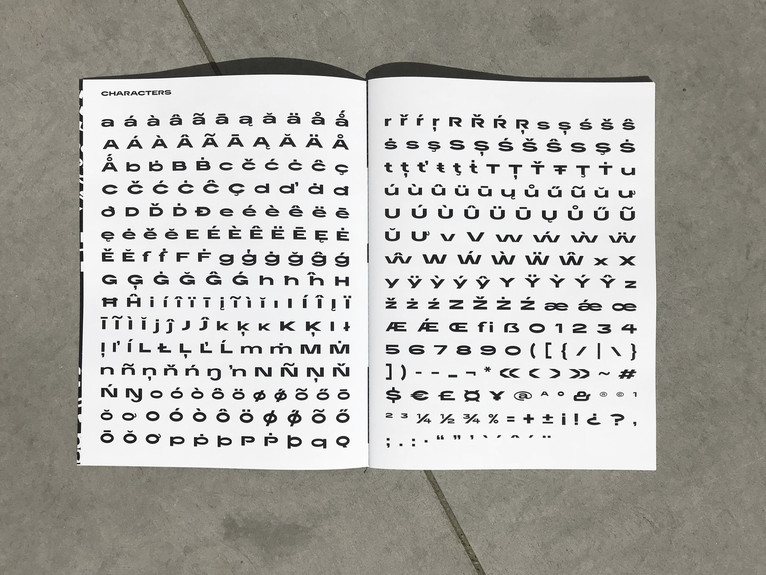 CHARACTERS
a á à â ã ā ą ă ä å ǻ
A Á À Â Ã Ā Ą Ă Ä Å
Ǻ b ḃ B Ḃ c č ć ċ ĉ ç
C Č Ć Ċ Ĉ Ç d ď ḋ đ
ð D Ď Ḋ Đ e é è ê ë ē
ę ė ě ĕ E É È Ê Ë Ē Ę Ė
Ě Ĕ f ḟ F Ḟ g ģ ġ ğ ĝ ǵ
G Ģ Ġ Ğ Ĝ Ǵ h ħ ĥ H
Ħ Ĥ i í î ï ī į ĩ ì ĭ ı I Í Î Į Ï
Ī Ĩ Ì Ĭ j ĵ J Ĵ k ķ ĸ K Ķ l ł
ļ ľ ĺ L Ł Ļ Ľ Ĺ m ṁ M Ṁ
n ñ ņ ň ń ŋ ŉ N Ñ Ņ Ň
Ń Ŋ o ó ò ô ö ø ǿ õ ő ō
ŏ ơ O Ó Ò Ô Ö Ø Ǿ Õ Ő
Ō Ŏ Ơ p ṗ þ P Ṗ Þ q Q
r ř ŕ ŗ R Ř Ŕ Ŗ s ş ś š ŝ
ṡ s ș S Ş Ś Š Ŝ s Ș Ṡ
t ţ ť ŧ ț ṫ T Ţ Ť Ŧ Ț Ṫ u
ú ù û ü ū ų ů ű ũ ŭ ư
U Ú Ù Û Ü Ū Ų Ů Ű Ũ
Ŭ Ư v V w ẃ ẁ ẅ
ŵ W Ẃ Ẁ Ẅ Ŵ x X
y ÿ ỳ ý ŷ Y Ÿ Ỳ Ý Ŷ z
ž ż ź Z Ž Ż Ź æ ǽ œ
Æ Ǽ Œ fi ß 0 1 2 3 4
5 6 7 8 9 0 ( [ { / | \ }
] ) - – _ ¬ * « ‹ › » ~ #
$ € £ ¤ ¥ @ ª º & ® © ¹
² ³ ¼ ½ ¾ % = + ± ¡ ! ¿ ? ,
; . : · “ ” ’ ‘